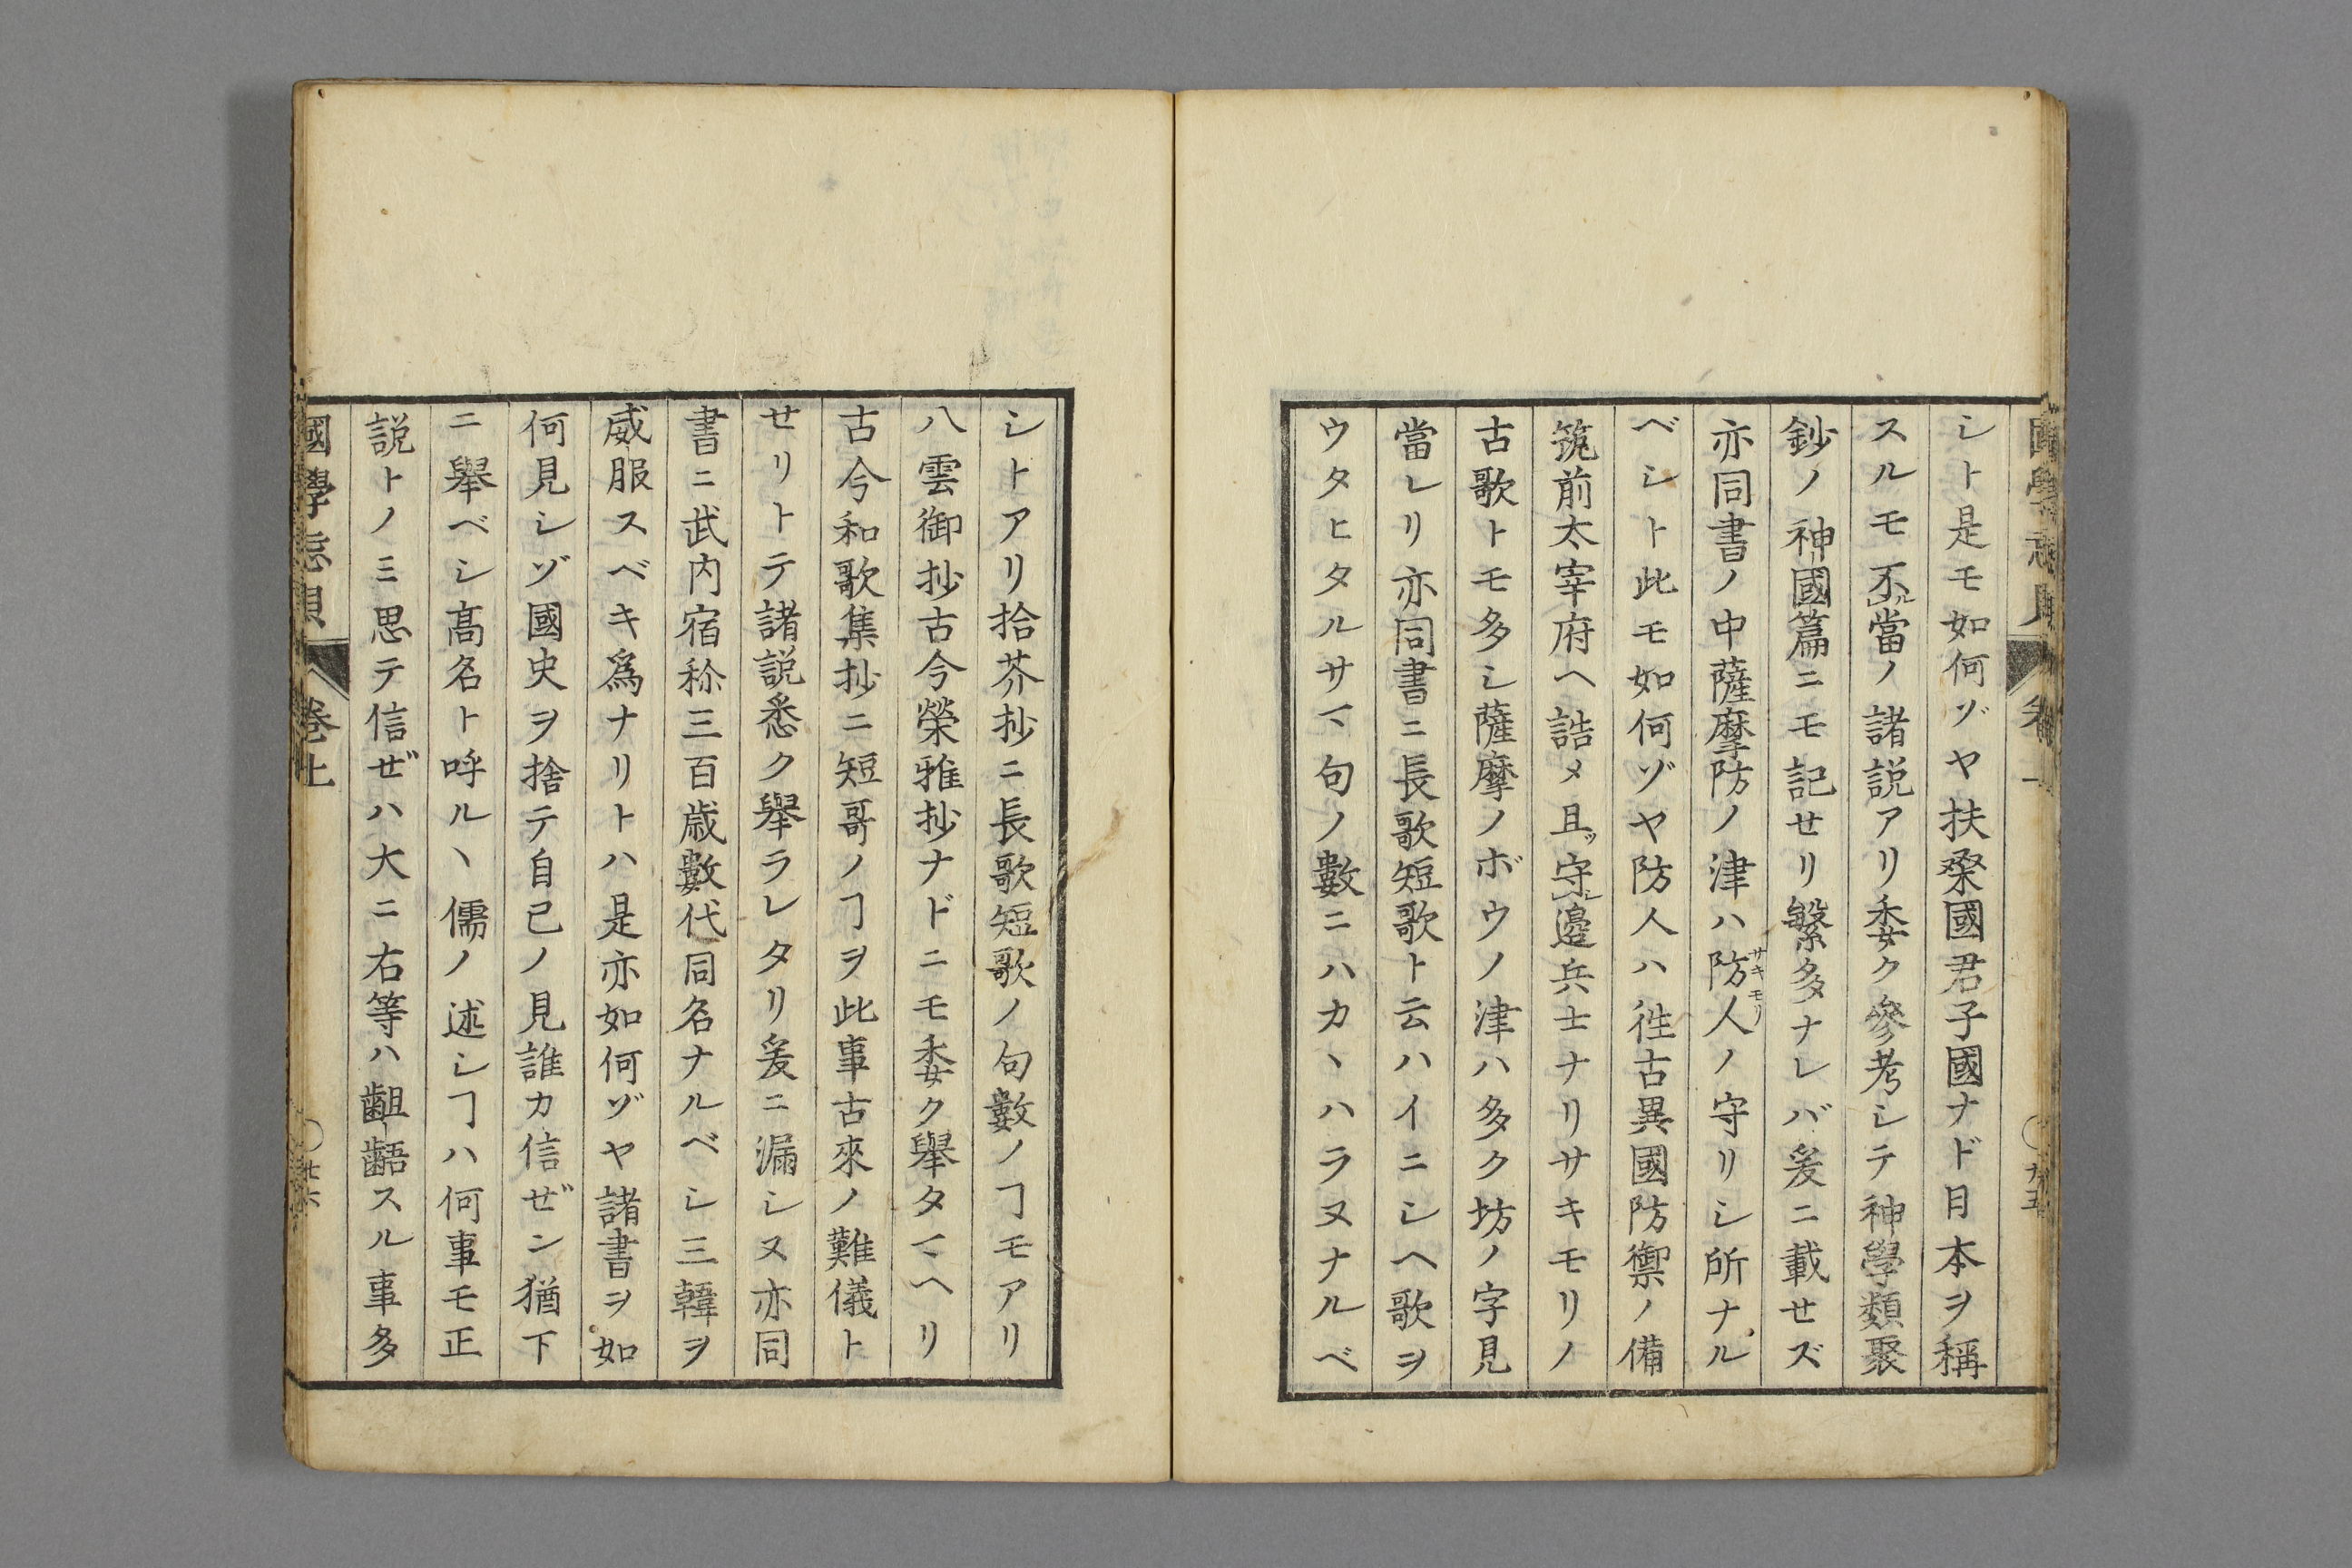 國學忘貝 卷上 ○廿五
シト是モ如何ゾヤ扶桒國君子國ナド日本ヲ稱
スルモ不ルレ當ノ諸説アリ委ク參考シテ神學類聚
鈔ノ神國篇ニモ記セリ繁多ナレバ爰ニ載セズ
亦同書ノ中薩摩防ノ津ハ防人サキモリノ守リシ所ナル
ベシト此モ如何ゾヤ防人ハ徃古異國防禦ノ備
筑前太宰府ヘ誥メ且ツ守ルレ邊兵士ナリサキモリノ
古歌トモ多シ薩摩ノボウノ津ハ多ク坊ノ字見
當レリ亦同書ニ長歌短歌ト云ハイニシヘ歌ヲ
ウタヒタルサマ句ノ數ニハカヽハラヌナルベ
シトアリ拾芥抄ニ長歌短歌ノ句數ノヿモアリ
八雲御抄古今榮雅抄ナドニモ委ク舉タマヘリ
古今和歌集抄ニ短哥ノヿヲ此事古來ノ難儀ト
セリトテ諸説悉ク舉ラレタリ爰ニ漏シヌ亦同
書ニ武内宿祢三百歳數代同名ナルベシ三韓ヲ
威服スベキ爲ナリトハ是亦如何ゾヤ諸書ヲ如
何見シゾ國史ヲ捨テ自己ノ見誰カ信ゼン猶下
ニ舉ベシ高名ト呼ルヽ儒ノ述シヿハ何事モ正
説トノミ思テ信ゼハ大ニ右等ハ齟齬スル事多
國學忘貝 卷上 ○廿六